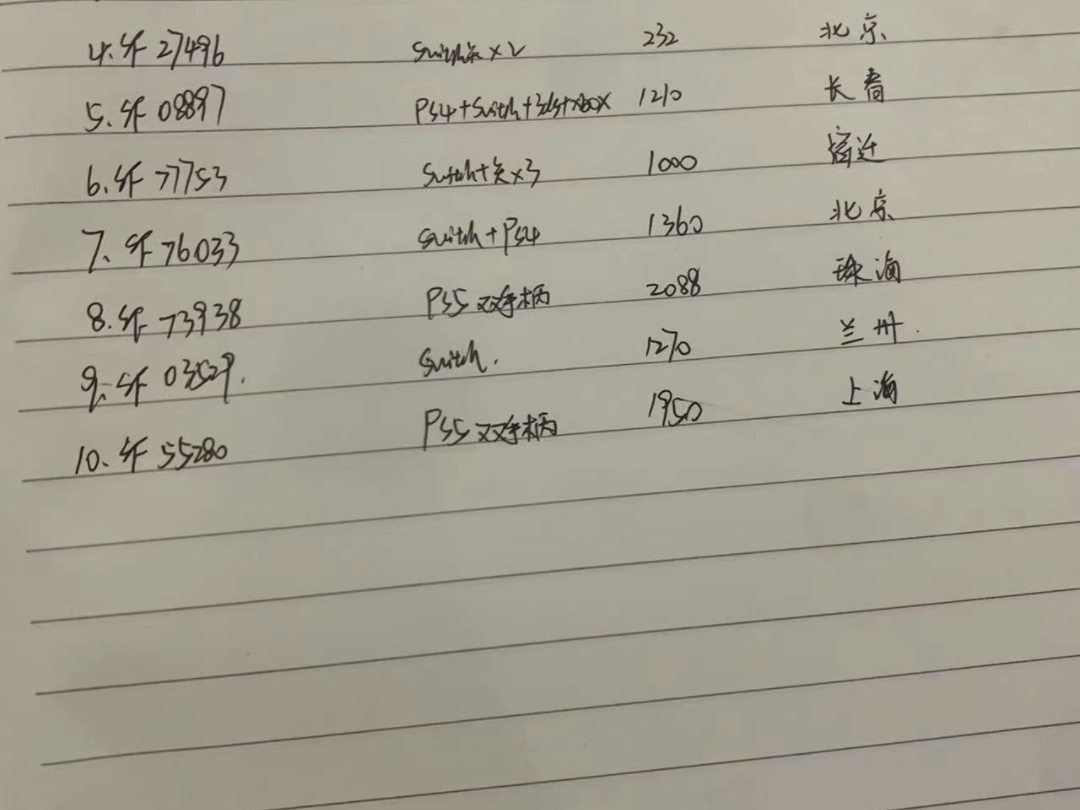 4. SF 27496 Switch卡×2 232 北京
5. SF 08897 PS4+Switch+3ds+xbox 1210 长春
6. SF 77753 Switch+卡×3 1000 宿迁
7. SF 76033 Switch+PS4 1360 北京
8. SF 73938 PS5 双手柄 2088 珠海
9. SF 03529. Switch. 1270 兰州.
10. SF 55280 PS5 双手柄 1950 上海